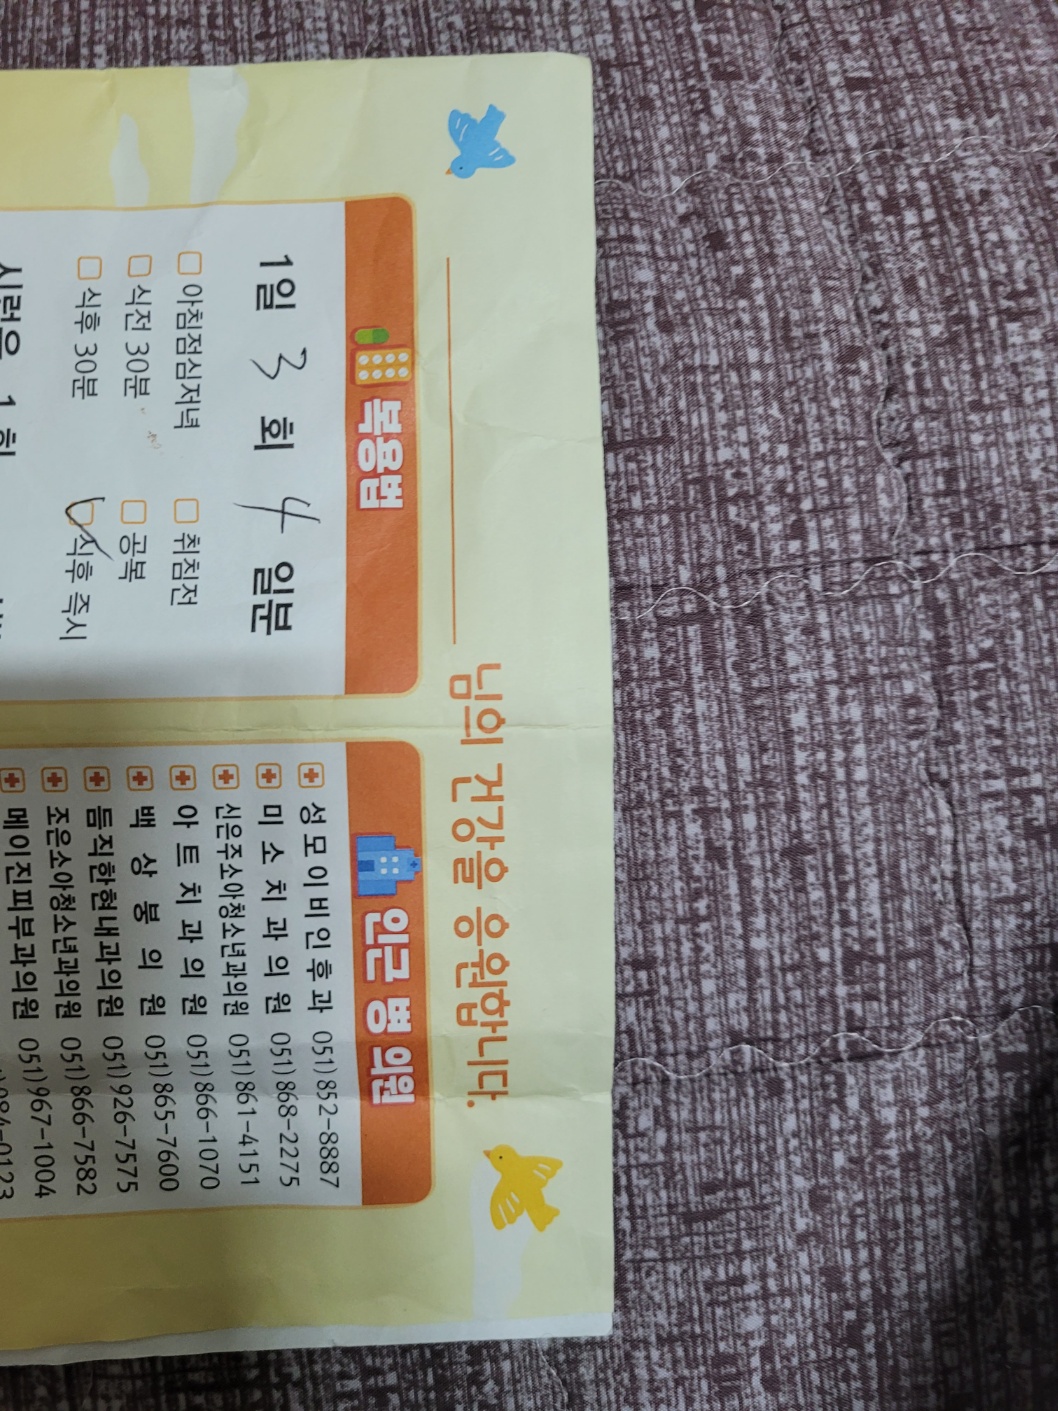 님의 건강을 응원합니다.
복용법
1일 3 회 4 일분
아침점심저녁 취침전
식전 30분 공복
식후 30분 식후 즉시
시럽은 1회
인근 병 의원
성모이비인후과 051)852-8887
미소치과의원 051)868-2275
신은주소아청소년과의원 051)861-4151
아트치과의원 051)866-1070
백상봉의원 051)865-7600
듬직한현내과의원 051)926-7575
조은소아청소년과의원 051)866-7582
메이진피부과의원 051)967-1004